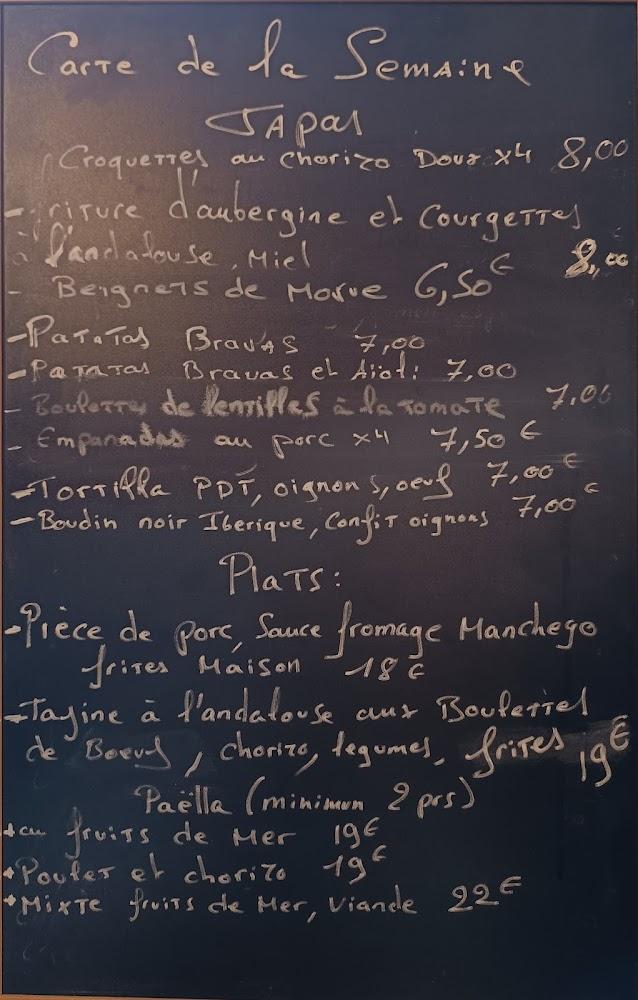 Carte de la Semaine
Tapas
Croquettes au chorizo Doux x4 8,00
- friture d'aubergine et courgettes
à l'andalouse, Miel 8,00
- Beignets de Morue 6,50€
- Patatas Bravas 7,00
- Patatas Bravas et Aïoli 7,00
- Boulettes de lentilles à la tomate 7.00
- Empanadas au porc x4 7,50€
- Tortilla PDT, oignons, oeuf 7,00€
- Boudin noir Iberique, Confit oignons 7,00€
Plats:
- Pièce de porc, Sauce fromage Manchego
frites Maison 18€
- Tajine à l'andalouse aux Boulettes
de Boeuf, chorizo, légumes, frites 19€
Paëlla (minimum 2 prs)
* au fruits de Mer 19€
* Poulet et chorizo 19€
* Mixte fruits de Mer, Viande 22€